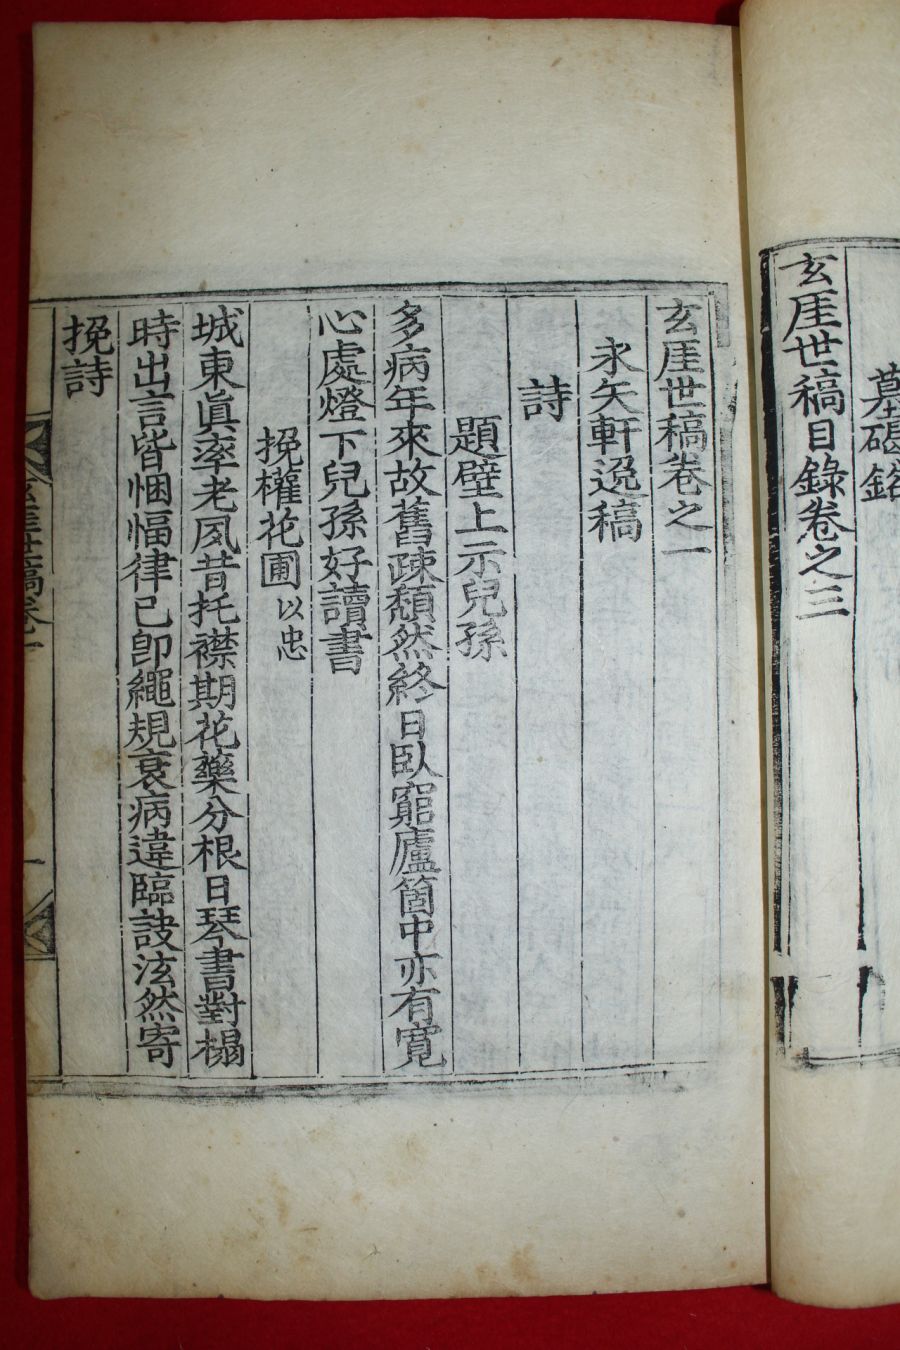 墓碣銘
玄厓世稿目錄卷之三
玄厓世稿卷之一
永矢軒逸稿
詩
題壁上示兒孫
多病年來故舊疎頹然終日臥窮廬箇中亦有寬
心處燈下兒孫好讀書
挽權花圃以忠
城東眞率老夙昔托襟期花藥分根日琴書對榻
時出言皆悃愊律己卽繩規衰病違臨訣泫然寄
挽詩
玄厓世稿卷一
一